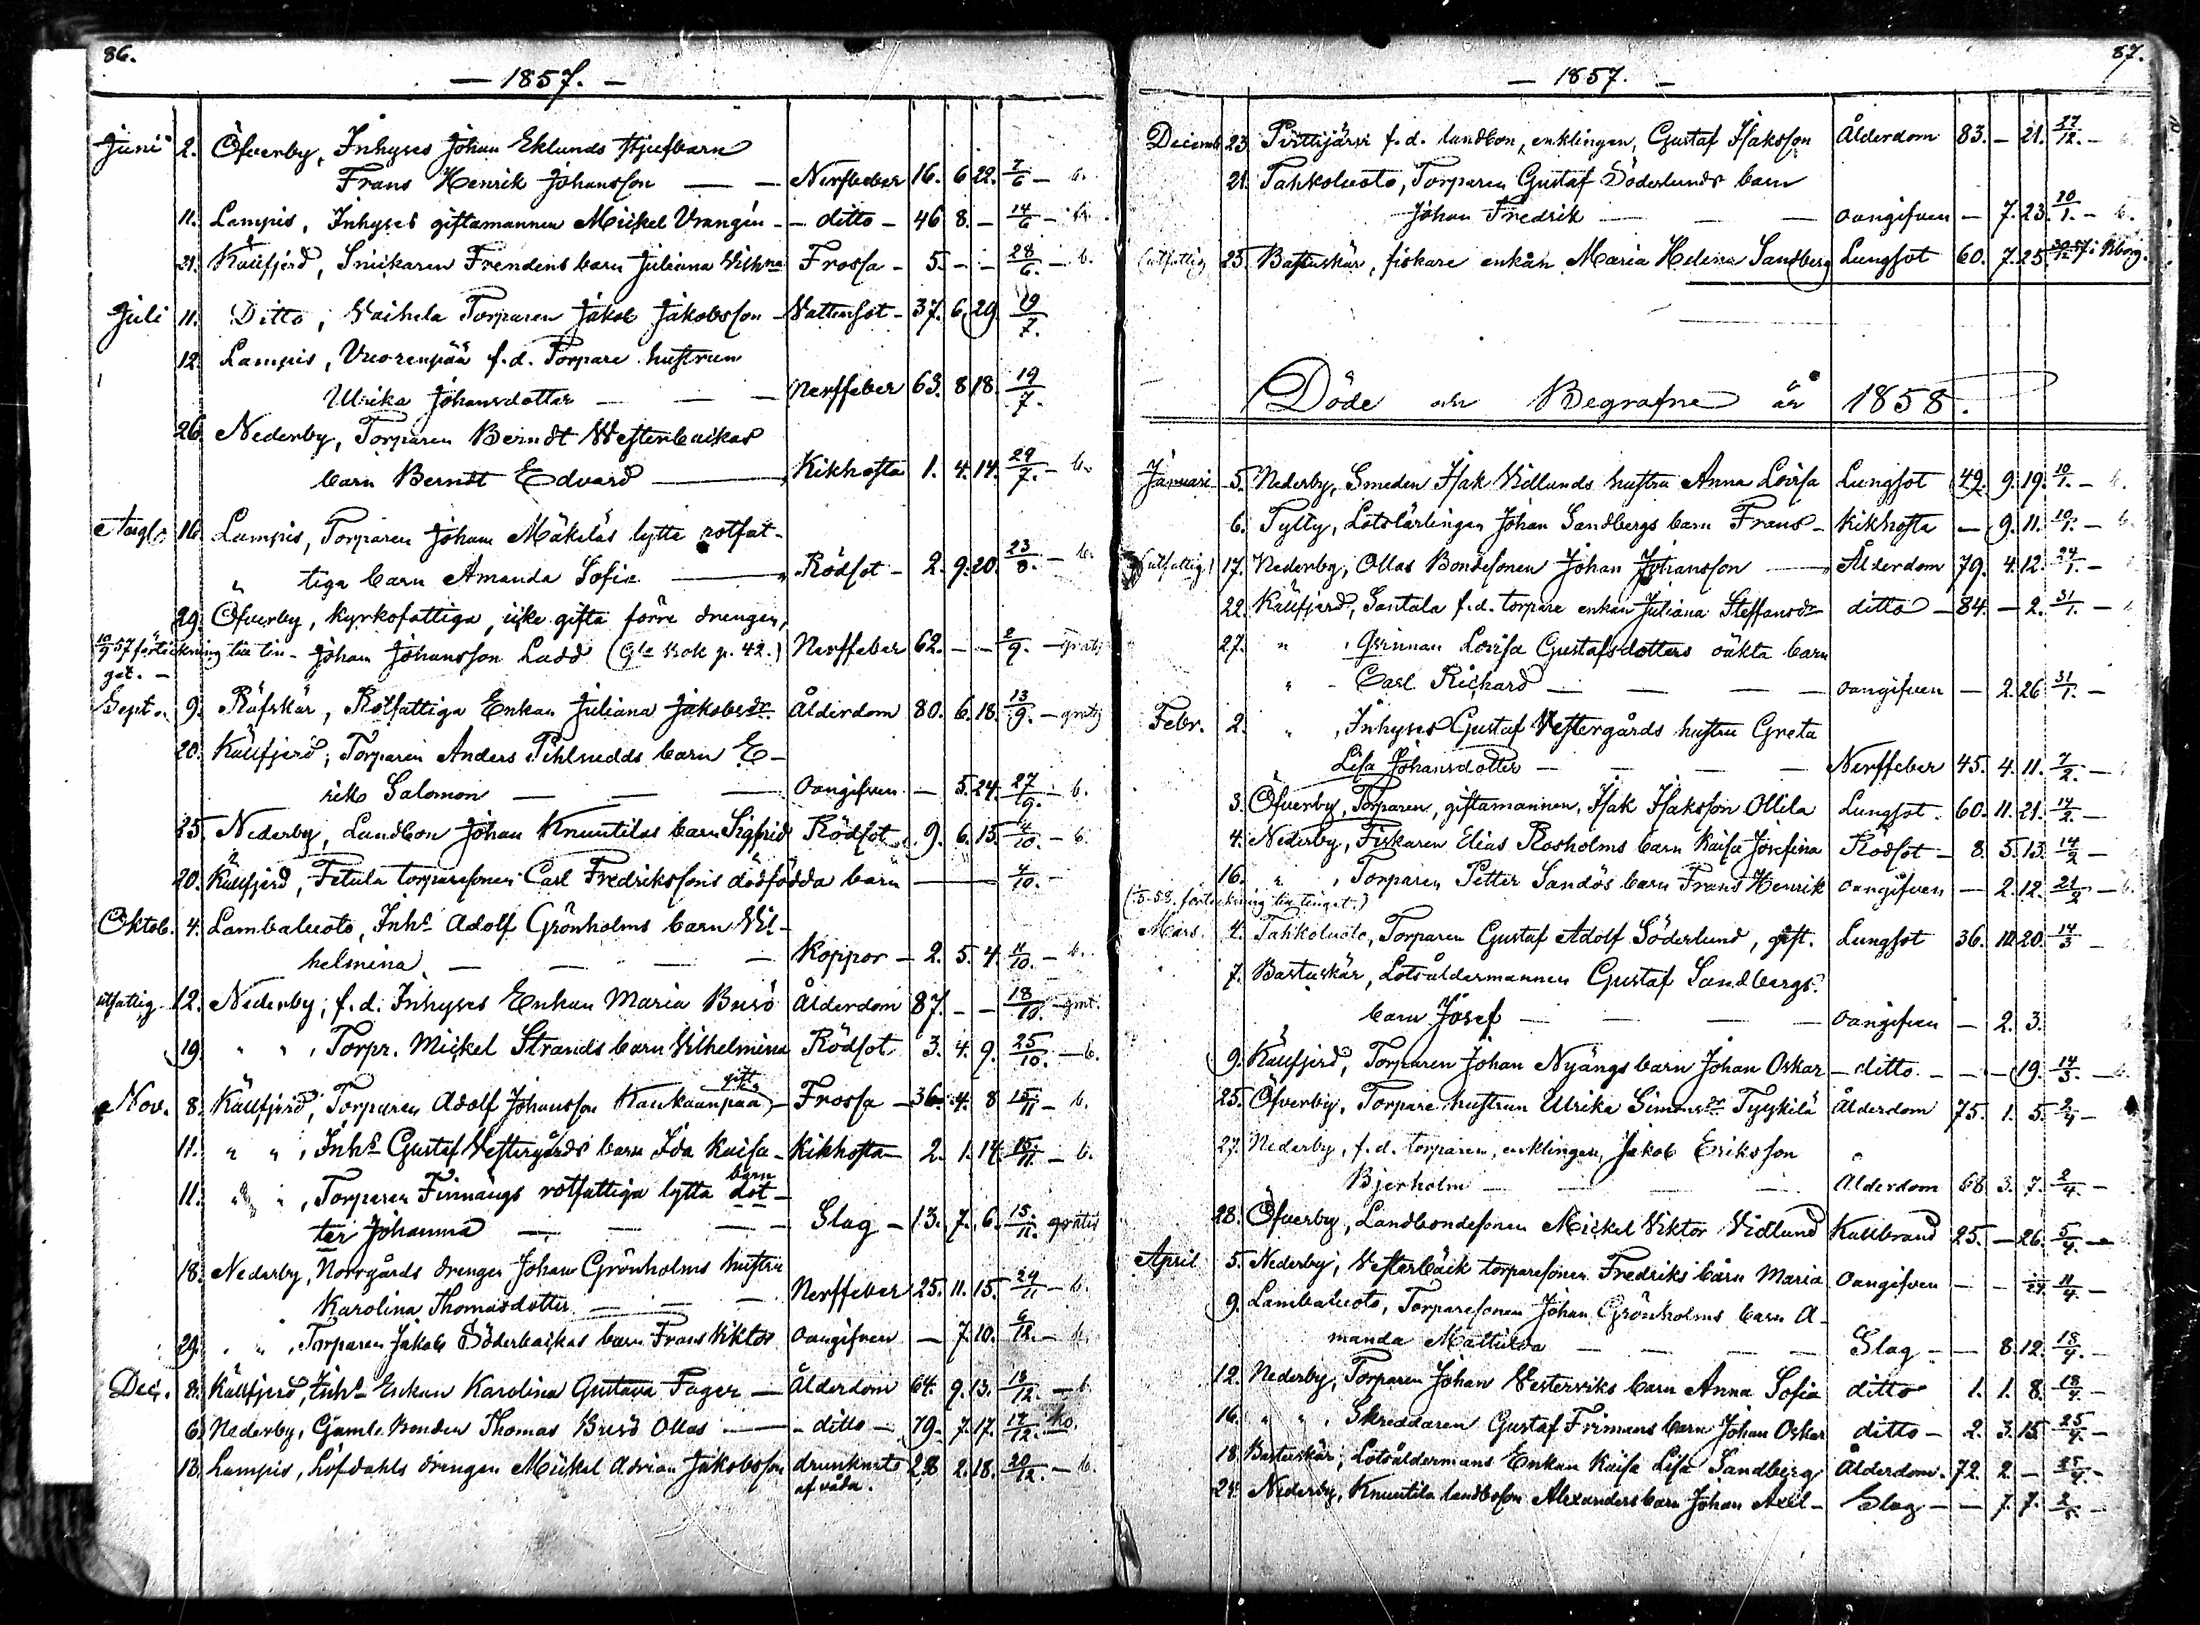 86.
— 1857. —
Juni 2. Öfverby, Inhyses Johan Eklunds styfbarn
Frans Henrik Johansson — — Nerffeber 16. 6 22. 7/6 — b.
11. Lampis, Inhyses giftamannen Mickel Vrangén — ditto — 46 8. — 14/6 — b.
21. Källfjerd, Snickaren Frendens barn Juliana Vilhna Frossa — 5. — — 28/6. — b.
Juli 11. Ditto, Vaihela Torparen Jakob Jakobsson — Vattensot — 37. 6. 29. 19/7.
12. Lampis, Vuorenpää f.d. Torpare hustrun
Ulrika Johansdotter — — — Nerffeber 63. 8 18. 19/7.
26. Nederby, Torparen Berndt Westerbackas
barn Berndt Edvard — Kikhosta 1. 4. 14. 29/7. — b.
Aug. 16. Lampis, Torparen Johan Mäkeläs lytta rotfat-
tiga barn Amanda Sofia — Rödsot — 2. 9. 20. 23/8. — b.
29. Öfverby, kyrkofattiga, icke gifta förre drengen,
10/9 57 förteckning till tin- Johan Johansson Ladd (Gla Bok p. 42.) Nerffeber 62. — — 2/9. — gratis
get. —
Sept. 9. Räfskär, Rotfattiga Enkan Juliana Jakobsdr Ålderdom 80. 6. 18. 13/9. — gratis
20. Källfjerd, Torparen Anders Pihlnedds barn E-
rik Salomon — — — Oangifven — 5. 24. 27/9. — b.
25. Nederby, Landbon Johan Knuutilas barn Sigfrid Rödsot 9. 6. 15. 4/10. — b.
20. Källfjerd, Fetula torparesonen Carl Fredrikssons dödfödda barn — — 4/10. —
Oktob. 4. Lambaluoto, Inhs Adolf Grönholms barn Vil-
helmina — — — Koppor — 2. 5. 4. 11/10. — b.
utfattig 12. Nederby, f.d. Inhyses Enkan Maria Busö Ålderdom 87. — — 18/10. — grat.
19. " " , Torpr. Mickel Strands barn Vilhelmina Rödsot 3. 4. 9. 25/10. — b.
gift
Nov. 8. Källfjerd, Torparen Adolf Johansson Kankaanpää — Frossa — 36. 4. 8 15/11 — b.
11. " " , Inhs Gustaf Westergårds barn Ida Kaisa — Kikhosta 2. 1. 14. 15/11 — b.
barn
11. " " , Torparen Finnängs rotfattiga lytta dot-
ter Johanna — — — Slag — 13. 7. 6. 15/11. gratis
18. Nederby, Norrgårds drengen Johan Grönholms hustru
Karolina Thomasdotter — — Nerffeber 25. 11. 15. 29/11 — b.
29. " " , Torparen Jakob Söderbackas barn Frans Viktor Oangifven — 7. 10. 6/12. — b.
Dec. 8. Källfjerd, Inhs Enkan Karolina Gustava Fager — Ålderdom 64. 9. 13. 13/12. — b
6. Nederby, Gamle Bonden Thomas Busö Ollas — — ditto — 79. 7. 17. 17/12.
13. Lampis, Löfdahls drengen Mickel Adrian Jakobsson drunknat 28 2. 18. 20/12. — b.
af våda.
87.
— 1857. —
Decemb. 23. Pirttijärvi f.d. landbon, enklingen, Gustaf Isaksson Ålderdom 83. — 21. 27/12. —
21. Tahkoluoto, Torparen Gustaf Söderlunds barn
Johan Fredrik — — — oangifven — 7. 23. 10/1. — b.
(utfattig 25. Bastuskär, fiskare enkan Maria Helena Sandberg Lungsot 60. 7. 25.
Döde och Begrafne år 1858.
Januari 5. Nederby, Smeden Isak Vidlunds hustru Anna Lovisa Lungsot 49. 9. 19. 10/1. —
6. Tylty, Lotslärlingen Johan Sandbergs barn Frans — Kikhosta — 9. 11. 10/1. — b.
(utfattig) 17. Nederby, Ollas Bondesonen Johan Johansson — Ålderdom 79. 4. 12. 24/1. —
22. Källfjerd, Santala f.d. torpare enkan Juliana Steffansdr ditto — 84. — 2. 31/1. —
27. " , Qvinnan Lovisa Gustafsdotters oäkta barn
" — Carl Richard — — — oangifven — 2. 26. 31/1. —
Febr. 2. " , Inhyses Gustaf Westergårds hustru Greta
Lisa Johansdotter — — Nerffeber 45. 4. 11. 7/2. —
3. Öfverby, Torparen, giftamannen, Isak Isaksson Ollila Lungsot. 60. 11. 21. 14/2. —
4. Nederby, Fiskaren Elias Rosholms barn Kaisa Josefina Rödsot — 8. 5. 13. 14/2 —
16. " , Torparen Petter Sandös barn Frans Henrik oangifven — 2. 12. 21/2 — b.
(/5-58. förteckning till tinget.)
Mars. 4. Tahkoluoto, Torparen Gustaf Adolf Söderlund, gift. Lungsot 36. 10. 20. 14/3 —
7. Bastuskär, Lotsåldermannen Gustaf Sandbergs
barn Josef — — — oangifven — 2. 3.
9. Källfjerd, Torparen Johan Nyängs barn Johan Oskar — ditto — — — 19. 14/3. —
25. Öfverby, Torpare hustrun Ulrika Simonsdr Tyskilä Ålderdom 75. 1. 5. 2/4 —
27. Nederby, f.d. torparen, enklingen, Jakob Eriksson
Bjerholm — — — Ålderdom 68 3. 7. 2/4. —
28. Öfverby, Landbondesonen Mickel Viktor Vidlund Kallbrand 25. — 26. 5/4. —
April 5. Nederby, Westerbäck torparesonen Fredriks barn Maria Oangifven — — 24. 11/4. —
9. Lambaluoto, Torparesonen Johan Grönholms barn A-
manda Mathilda — — — Slag — — 8. 12. 18/4. —
12. Nederby, Torparen Johan Westerviks barn Anna Sofia ditto 1. 1. 8. 18/4. —
16. " " , Skreddaren Gustaf Frimans barn Johan Oskar ditto — 2. 3. 15. 25/4. —
18. Bastuskär, Lotsåldermans Enkan Kaisa Lisa Sandberg Ålderdom. 72. 2. — 25/4. —
24. Nederby, Knuutila landboson Alexanders barn Johan Axel — Slag — — 7. 7. 2/5. —